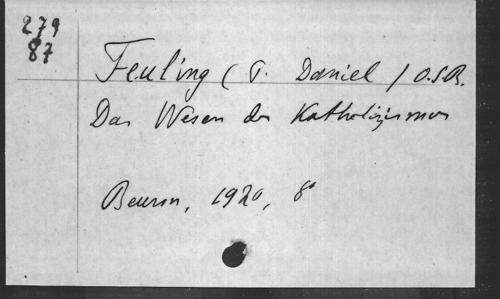 279
87
Feuling (P. Daniel) O.S.B.
Das Wesen des Katholizismus
Beuron, 1920, 8°